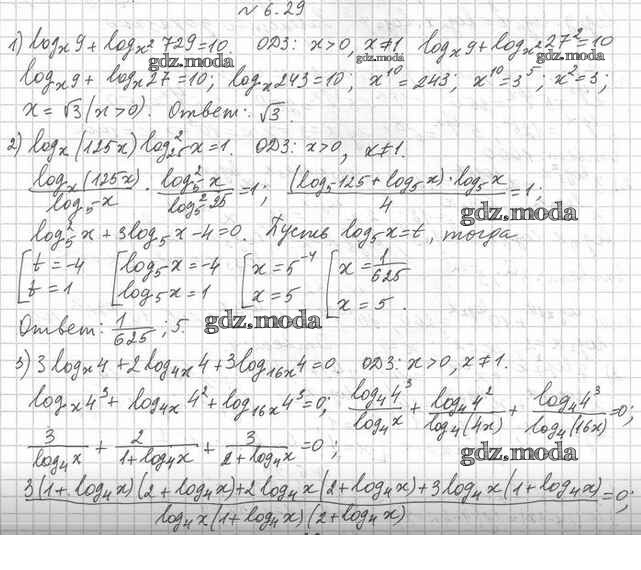 № 6.29
1) log_x 9 + log_{x²} 729 = 10. ОДЗ: x > 0, x ≠ 1 log_x 9 + log_{x²} 27² = 10
gdz.moda gdz.moda gdz.moda
log_x 9 + log_x 27 = 10; log_x 243 = 10; x¹⁰ = 243; x¹⁰ = 3⁵; x² = 3;
x = √3 (x > 0). Ответ: √3.
2) log_x (125x) log²_{25} x = 1. ОДЗ: x > 0, x ≠ 1.
log_5 (125x) / log_5 x · log²_5 x / log²_5 25 = 1; (log_5 125 + log_5 x) · log_5 x / 4 = 1;
gdz.moda
log²_5 x + 3 log_5 x - 4 = 0. Пусть log_5 x = t, тогда
[ t = -4 [ log_5 x = -4 [ x = 5⁻⁴ [ x = 1/625
t = 1 log_5 x = 1 x = 5 x = 5.
Ответ: 1/625; 5. gdz.moda
3) 3 log_x 4 + 2 log_{4x} 4 + 3 log_{16x} 4 = 0. ОДЗ: x > 0, x ≠ 1.
log_x 4³ + log_{4x} 4² + log_{16x} 4³ = 0; log_4 4³ / log_4 x + log_4 4² / log_4 (4x) + log_4 4³ / log_4 (16x) = 0;
3 / log_4 x + 2 / (1 + log_4 x) + 3 / (2 + log_4 x) = 0;
gdz.moda
3(1 + log_4 x)(2 + log_4 x) + 2 log_4 x (2 + log_4 x) + 3 log_4 x (1 + log_4 x) / log_4 x (1 + log_4 x)(2 + log_4 x) = 0;